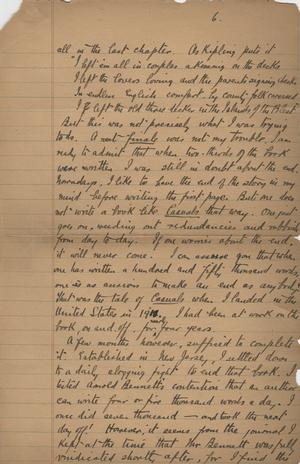 6.
all in the last chapter. As Kipling puts it
"I left 'em all in couples a-kissing on the decks
I left the lovers loving and the parents signing cheques
In endless English comfort, by county-folk caressed
I left the old three-decker in the Islands of the Blest."
But this was not precisely what I was trying
to do. A neat finale was not my trouble. I am
ready to admit that when two-thirds of the book
were written I was still in doubt about the end.
Nowadays, I like to have the end of the story in my
mind before writing the first page. But one does
not write a book like Casuals that way. One just
goes on, weeding out redundancies and
from day to day. If one worries about the end,
it will never come. I can assure you that when
one has written a hundred and fifty thousand words,
one is as anxious to make an end as anybody!
That was the tale of Casuals when I landed in the
United States in 19 I had been at work on the
book, on and off, for nearly four years.
A few months however, sufficed to complete
it. Established in New Jersey, I settled down
to a daily slogging fight to end that book. I
tested Arnold Bennett's contention that an author
can write four or five thousand words a day. I
once did seven thousand — and took the next
day off! However, it seems from the journal I
kept at the time that Mr Bennett was fully
vindicated shortly after, for I find this